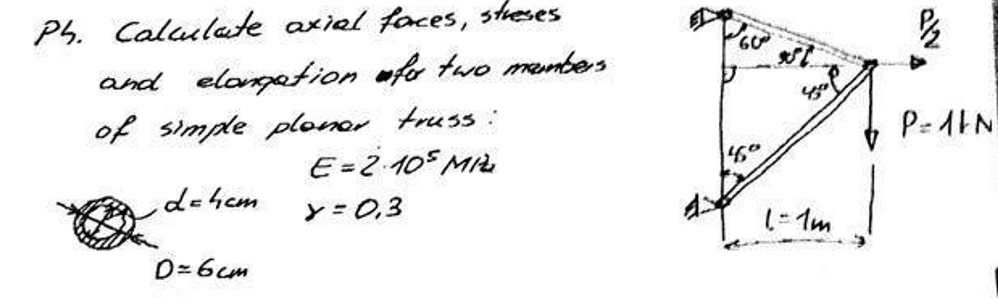 P4. Calculate axial forces, streses
and elongation for two members
of simple planar truss:
E = 2·10⁵ MPa
d=4cm
γ = 0,3
D=6cm
P/2
60°
30°
45°
P=1kN
45°
l=1m